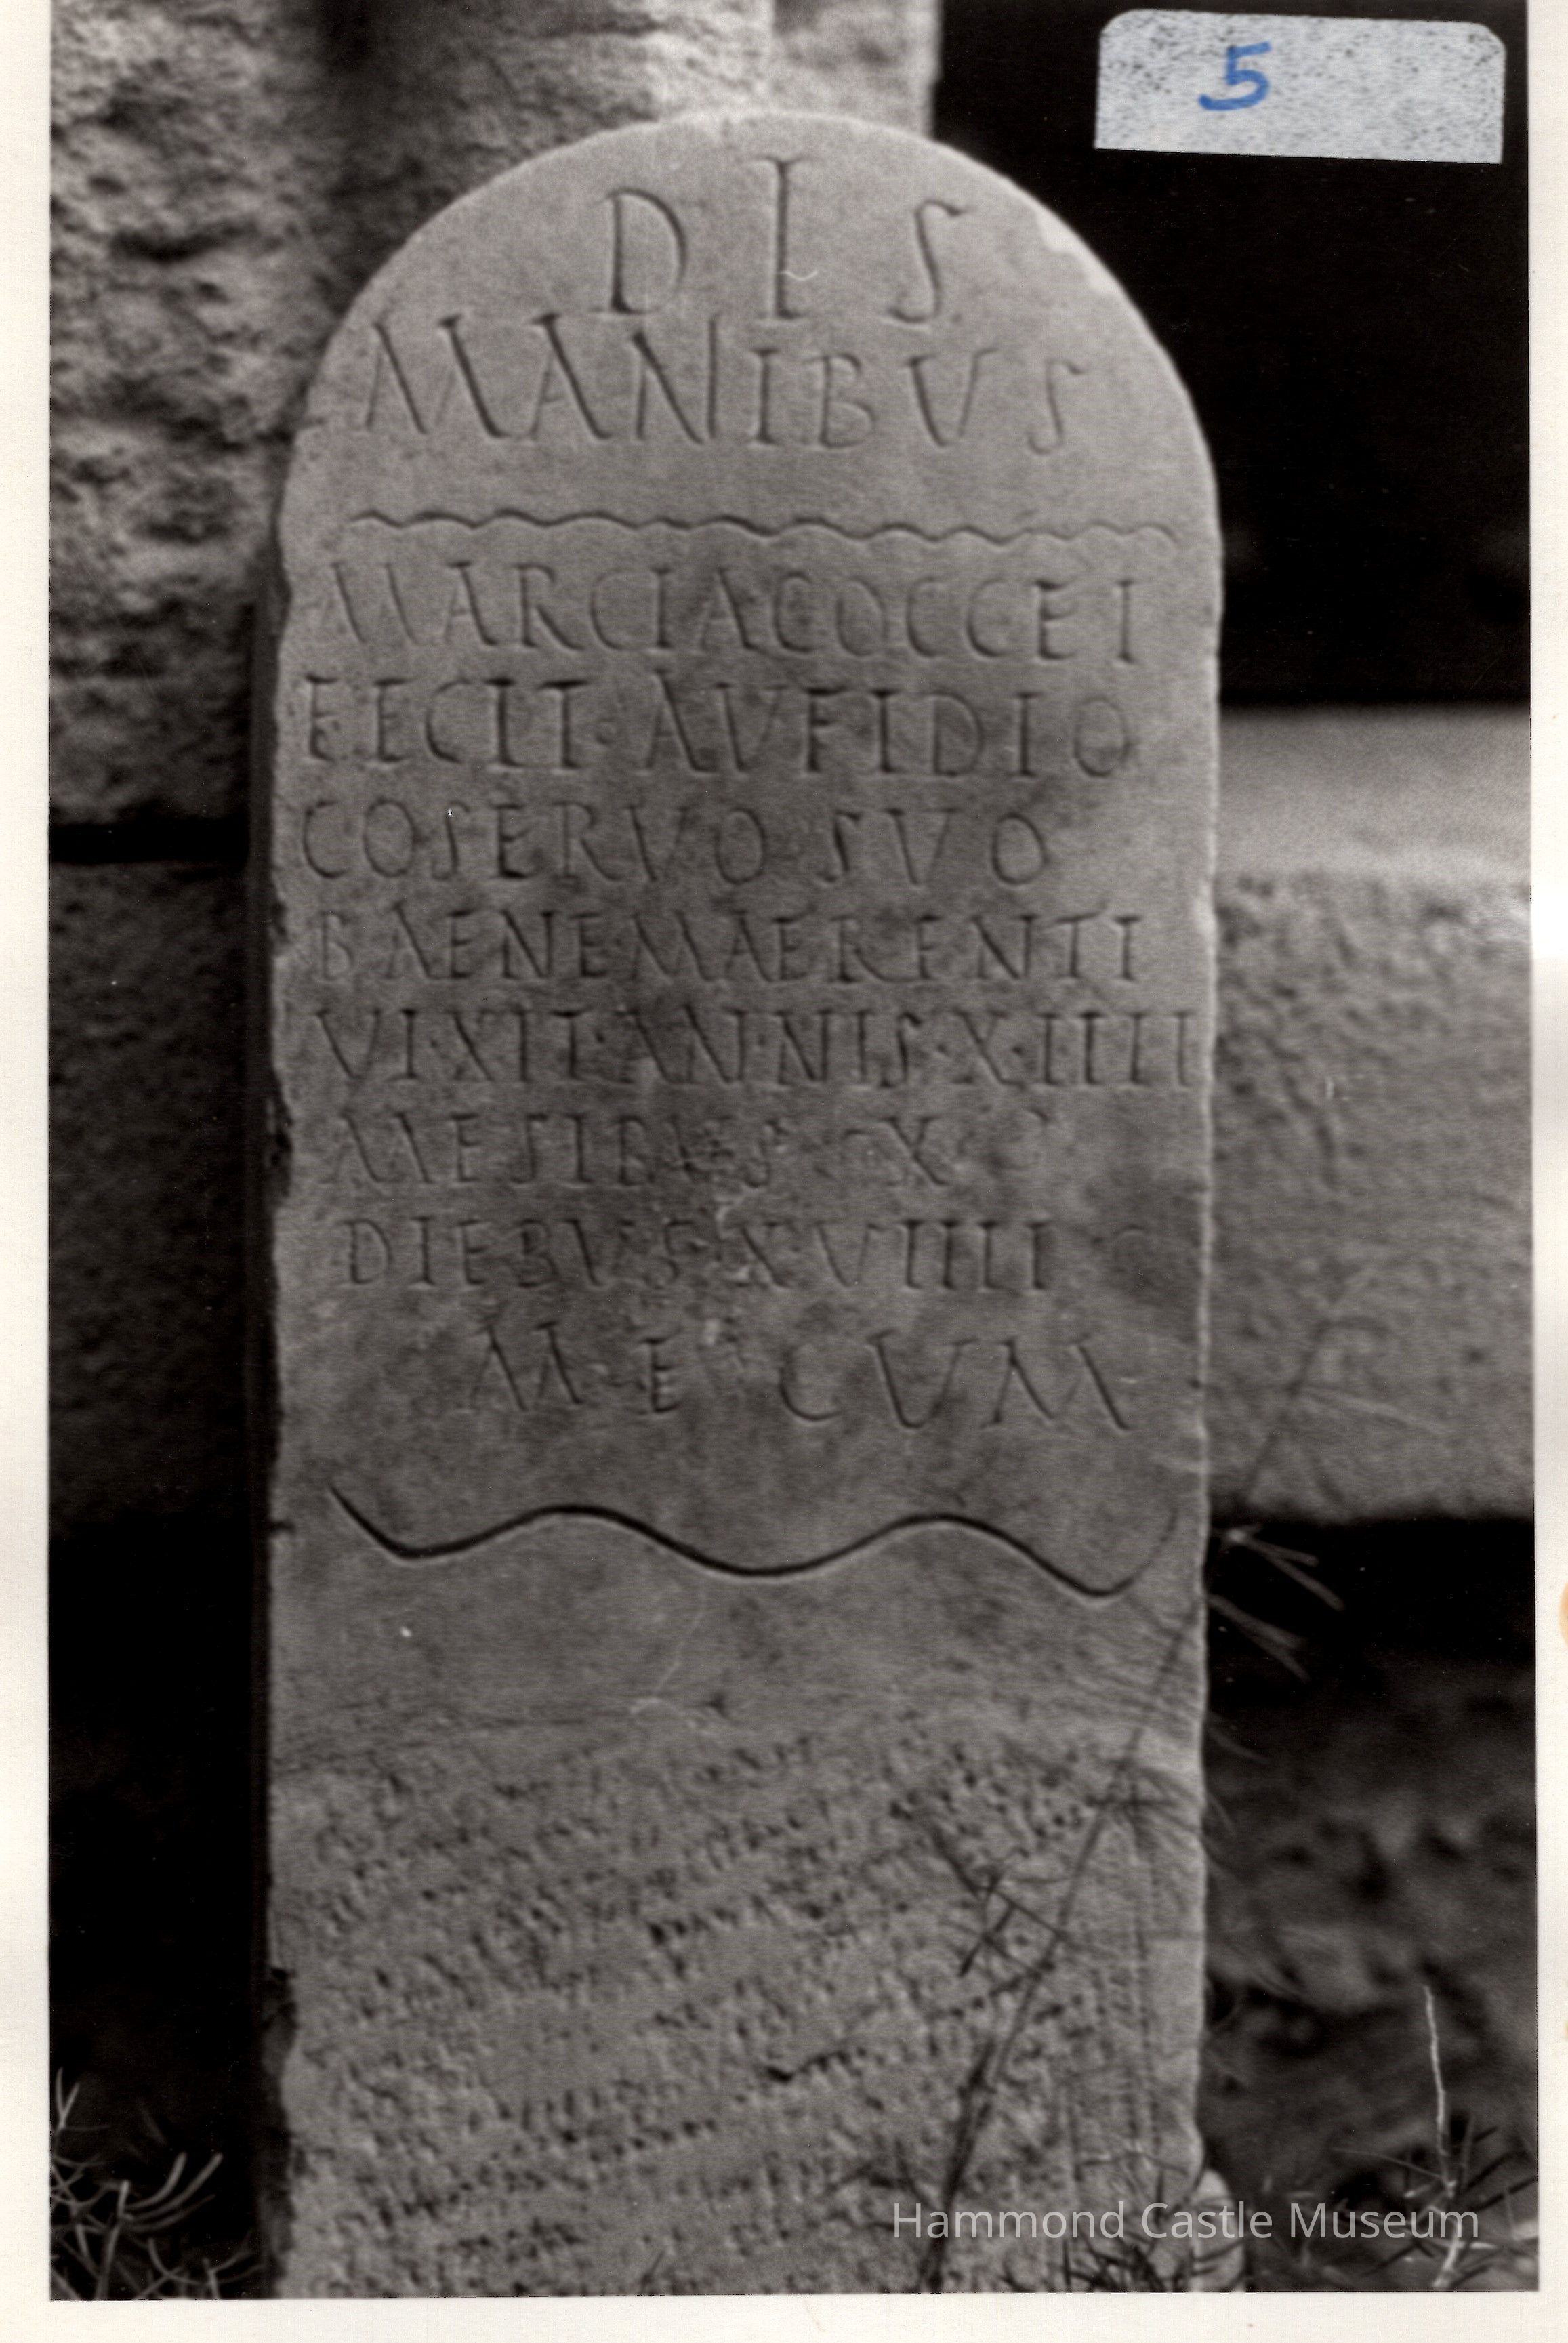 5
DIS
MANIBVS
MARCIACOCCEI
FECIT·AVFIDIO
COSERVO SVO
BAENEMAERENTI
VI·XIT·ANNIS·X·IIII
MESIBVS X
DIEBVS·X·VIIII
M·E CVM
Hammond Castle Museum